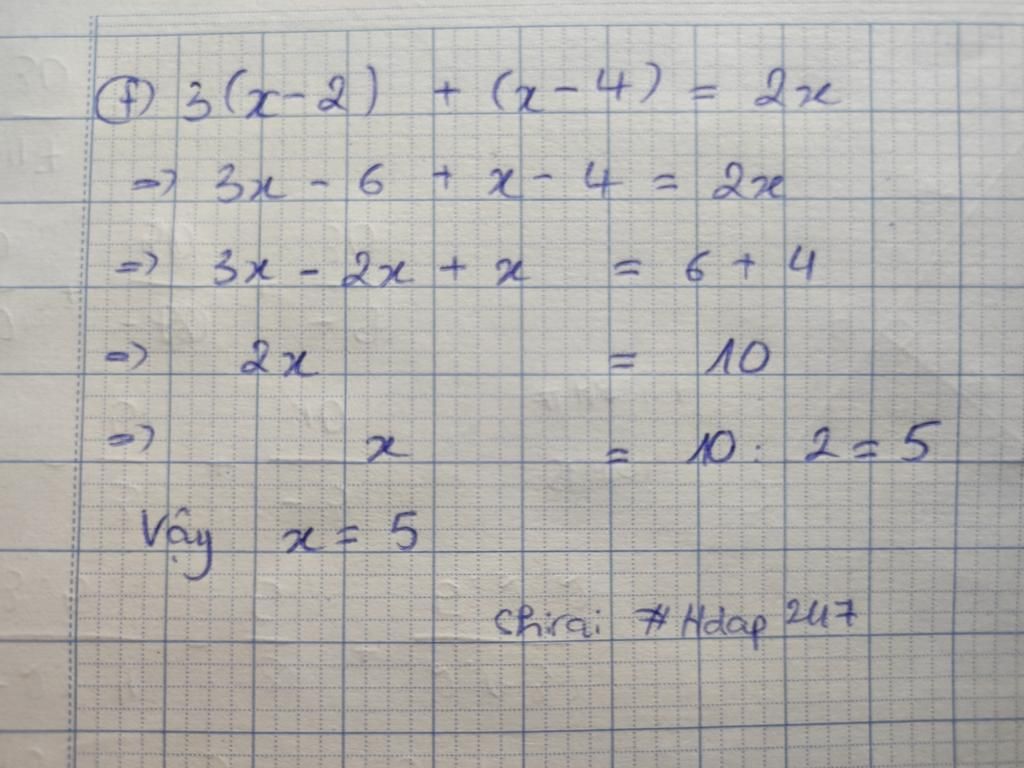 f) 3(x-2) + (x-4) = 2x
=> 3x - 6 + x - 4 = 2x
=> 3x - 2x + x = 6 + 4
=> 2x = 10
=> x = 10 : 2 = 5
Vậy x = 5
Shirai #Hdap 247